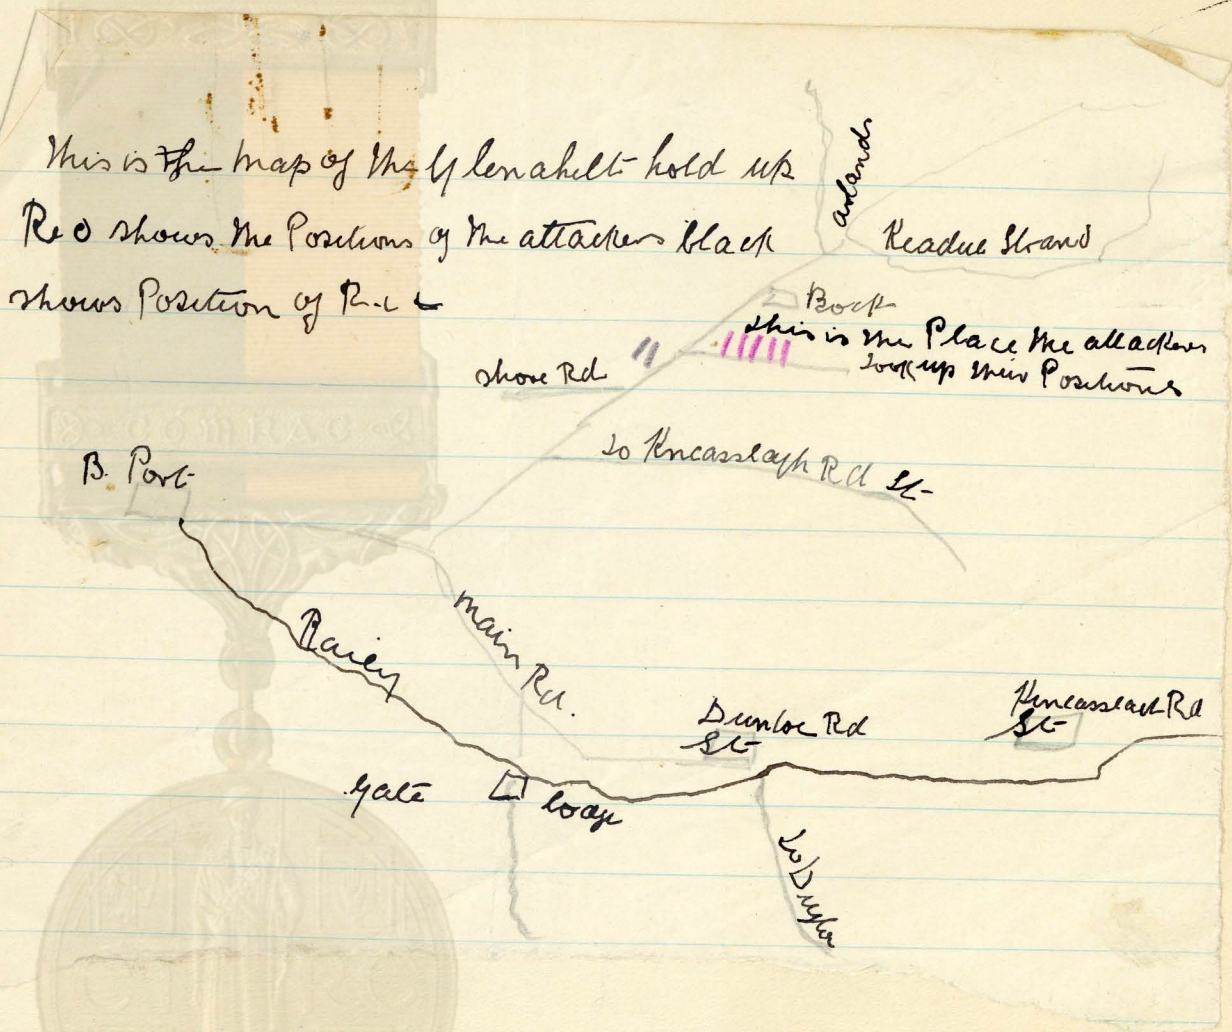 This is the map of the Glenahilt hold up
Red shows the Positions of the attackers black
shows Position of R.I.C
Keadue Strand
Rock
this is the Place the attackers
took up their Positions
shore Rd
to Kncasslagh Rd St
B. Port
Railey
main Rd.
Dunloe Rd
St
Kincasslach Rd
St
gate lodge
COMRAC